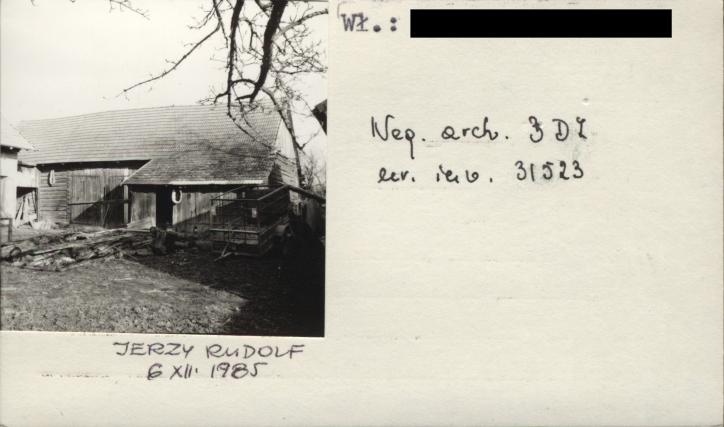 Wł.:
Neg. arch. BDZ
nr. inw. 31523
JERZY RUDOLF
6 XII. 1985